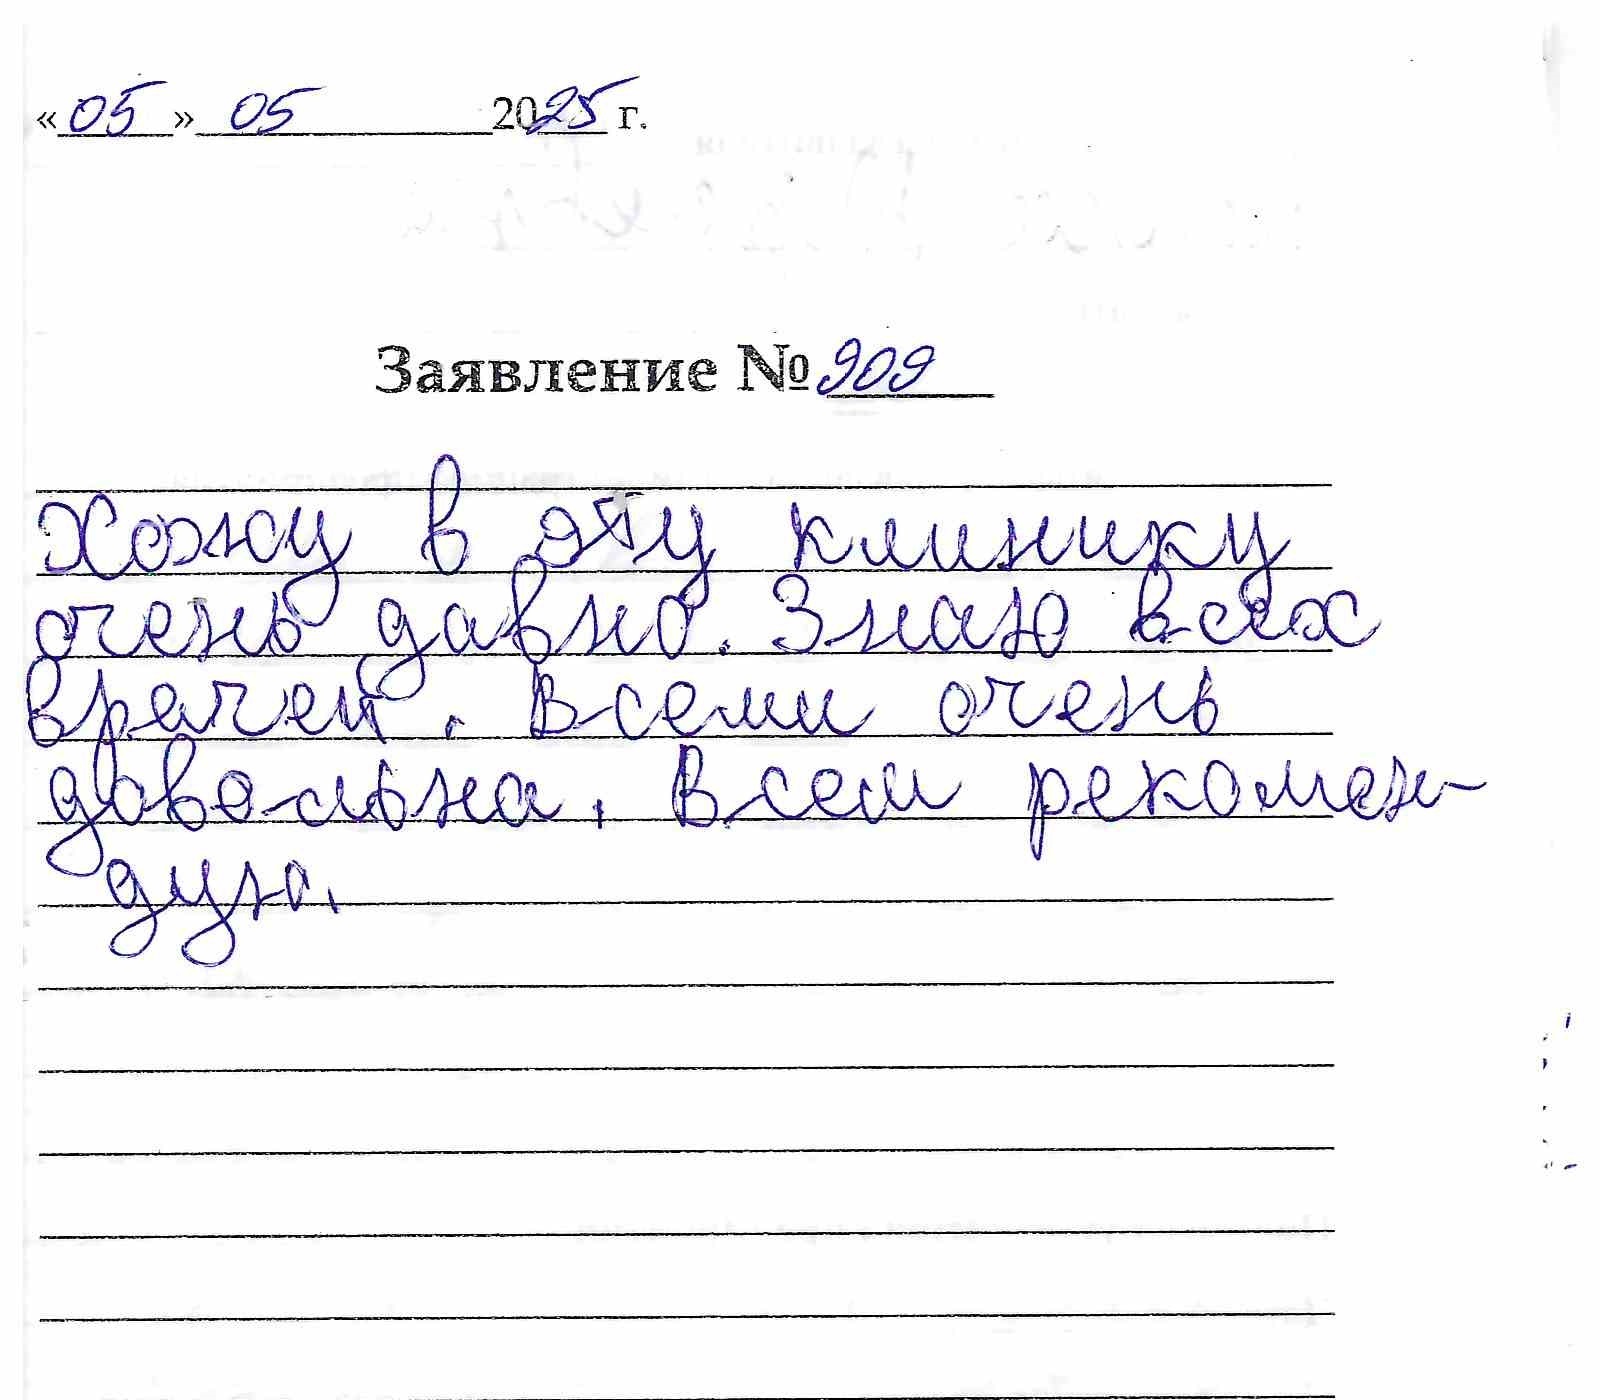 «05» 05 2025 г.
Заявление № 909
Хожу в эту клинику
очень давно. Знаю всех
врачей. Всеми очень
довольна. Всем рекомен-
дую.